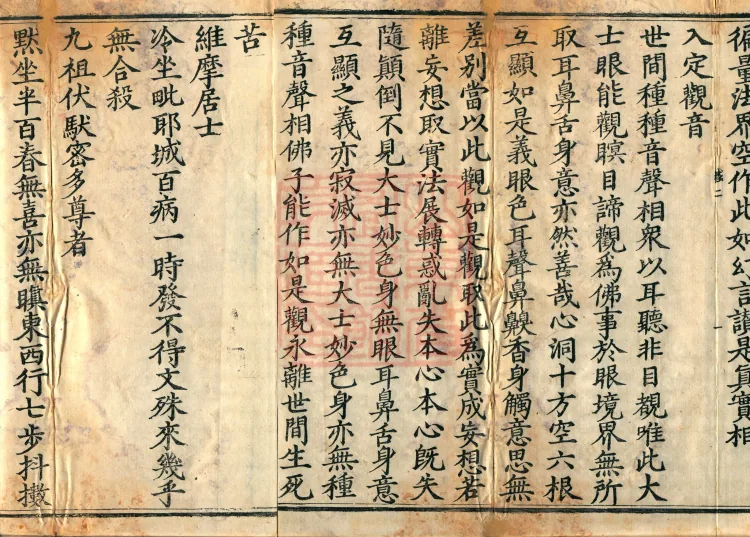 循量法界空作此如幻言讚是真實相
入定觀音
世間種種音聲相衆以耳聽非目觀唯此大
士眼能觀瞑目諦觀為佛事於眼境界無所
取耳鼻舌身意亦然善哉心洞十方空六根
互顯如是義眼色耳聲鼻齅香身觸意思無
差別當以此觀如是觀取此為實成妄想若
離妄想取實法展轉惑亂失本心本心既失
隨顛倒不見大士妙色身無眼耳鼻舌身意
互顯之義亦寂滅亦無大士妙色身亦無種
種音聲相佛子能作如是觀永離世間生死
苦
維摩居士
冷坐毗耶城百病一時發不得文殊來幾乎
無合殺
九祖伏馱密多尊者
黙坐半百春無喜亦無瞋東西行七步抖擻